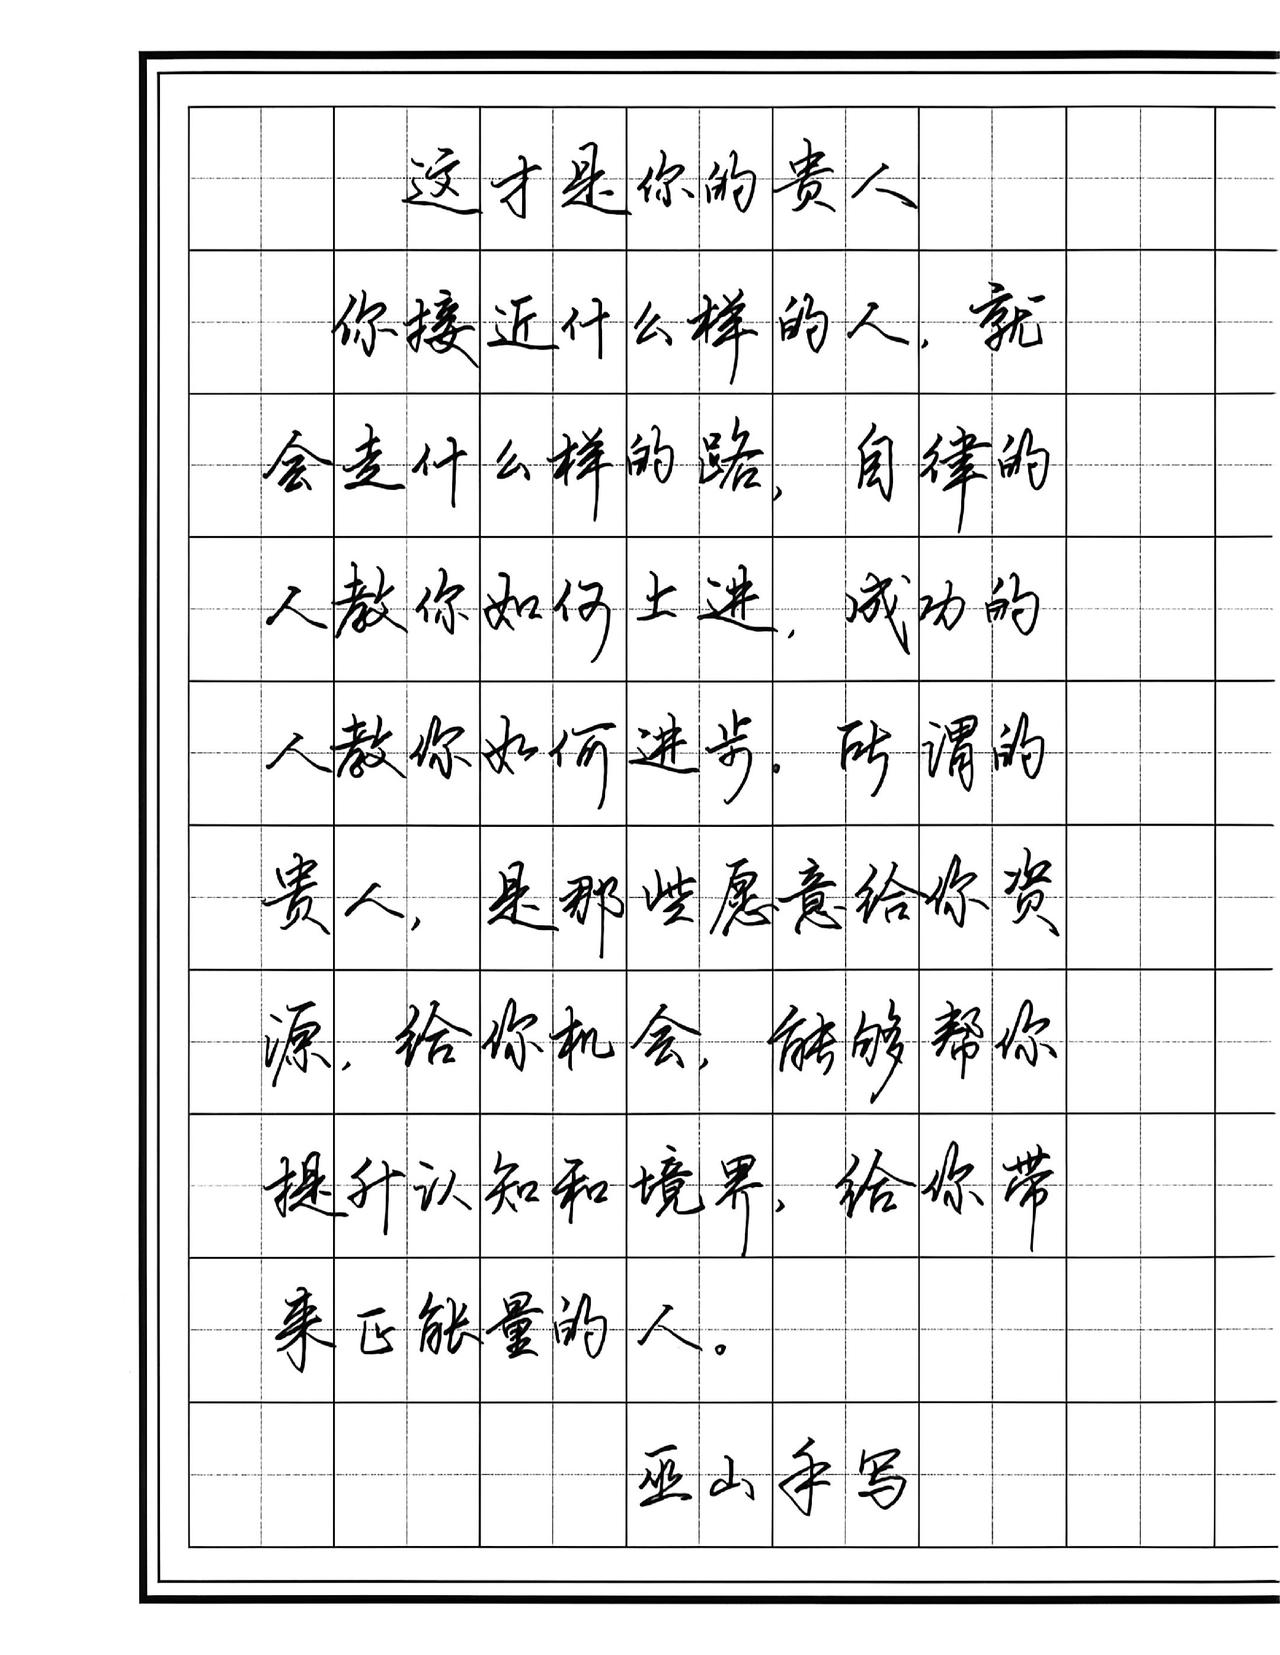 这才是你的贵人
你接近什么样的人,就
会走什么样的路,自律的
人教你如何上进,成功的
人教你如何进步。所谓的
贵人,是那些愿意给你资
源,给你机会,能够帮你
提升认知和境界,给你带
来正能量的人。
巫山手写